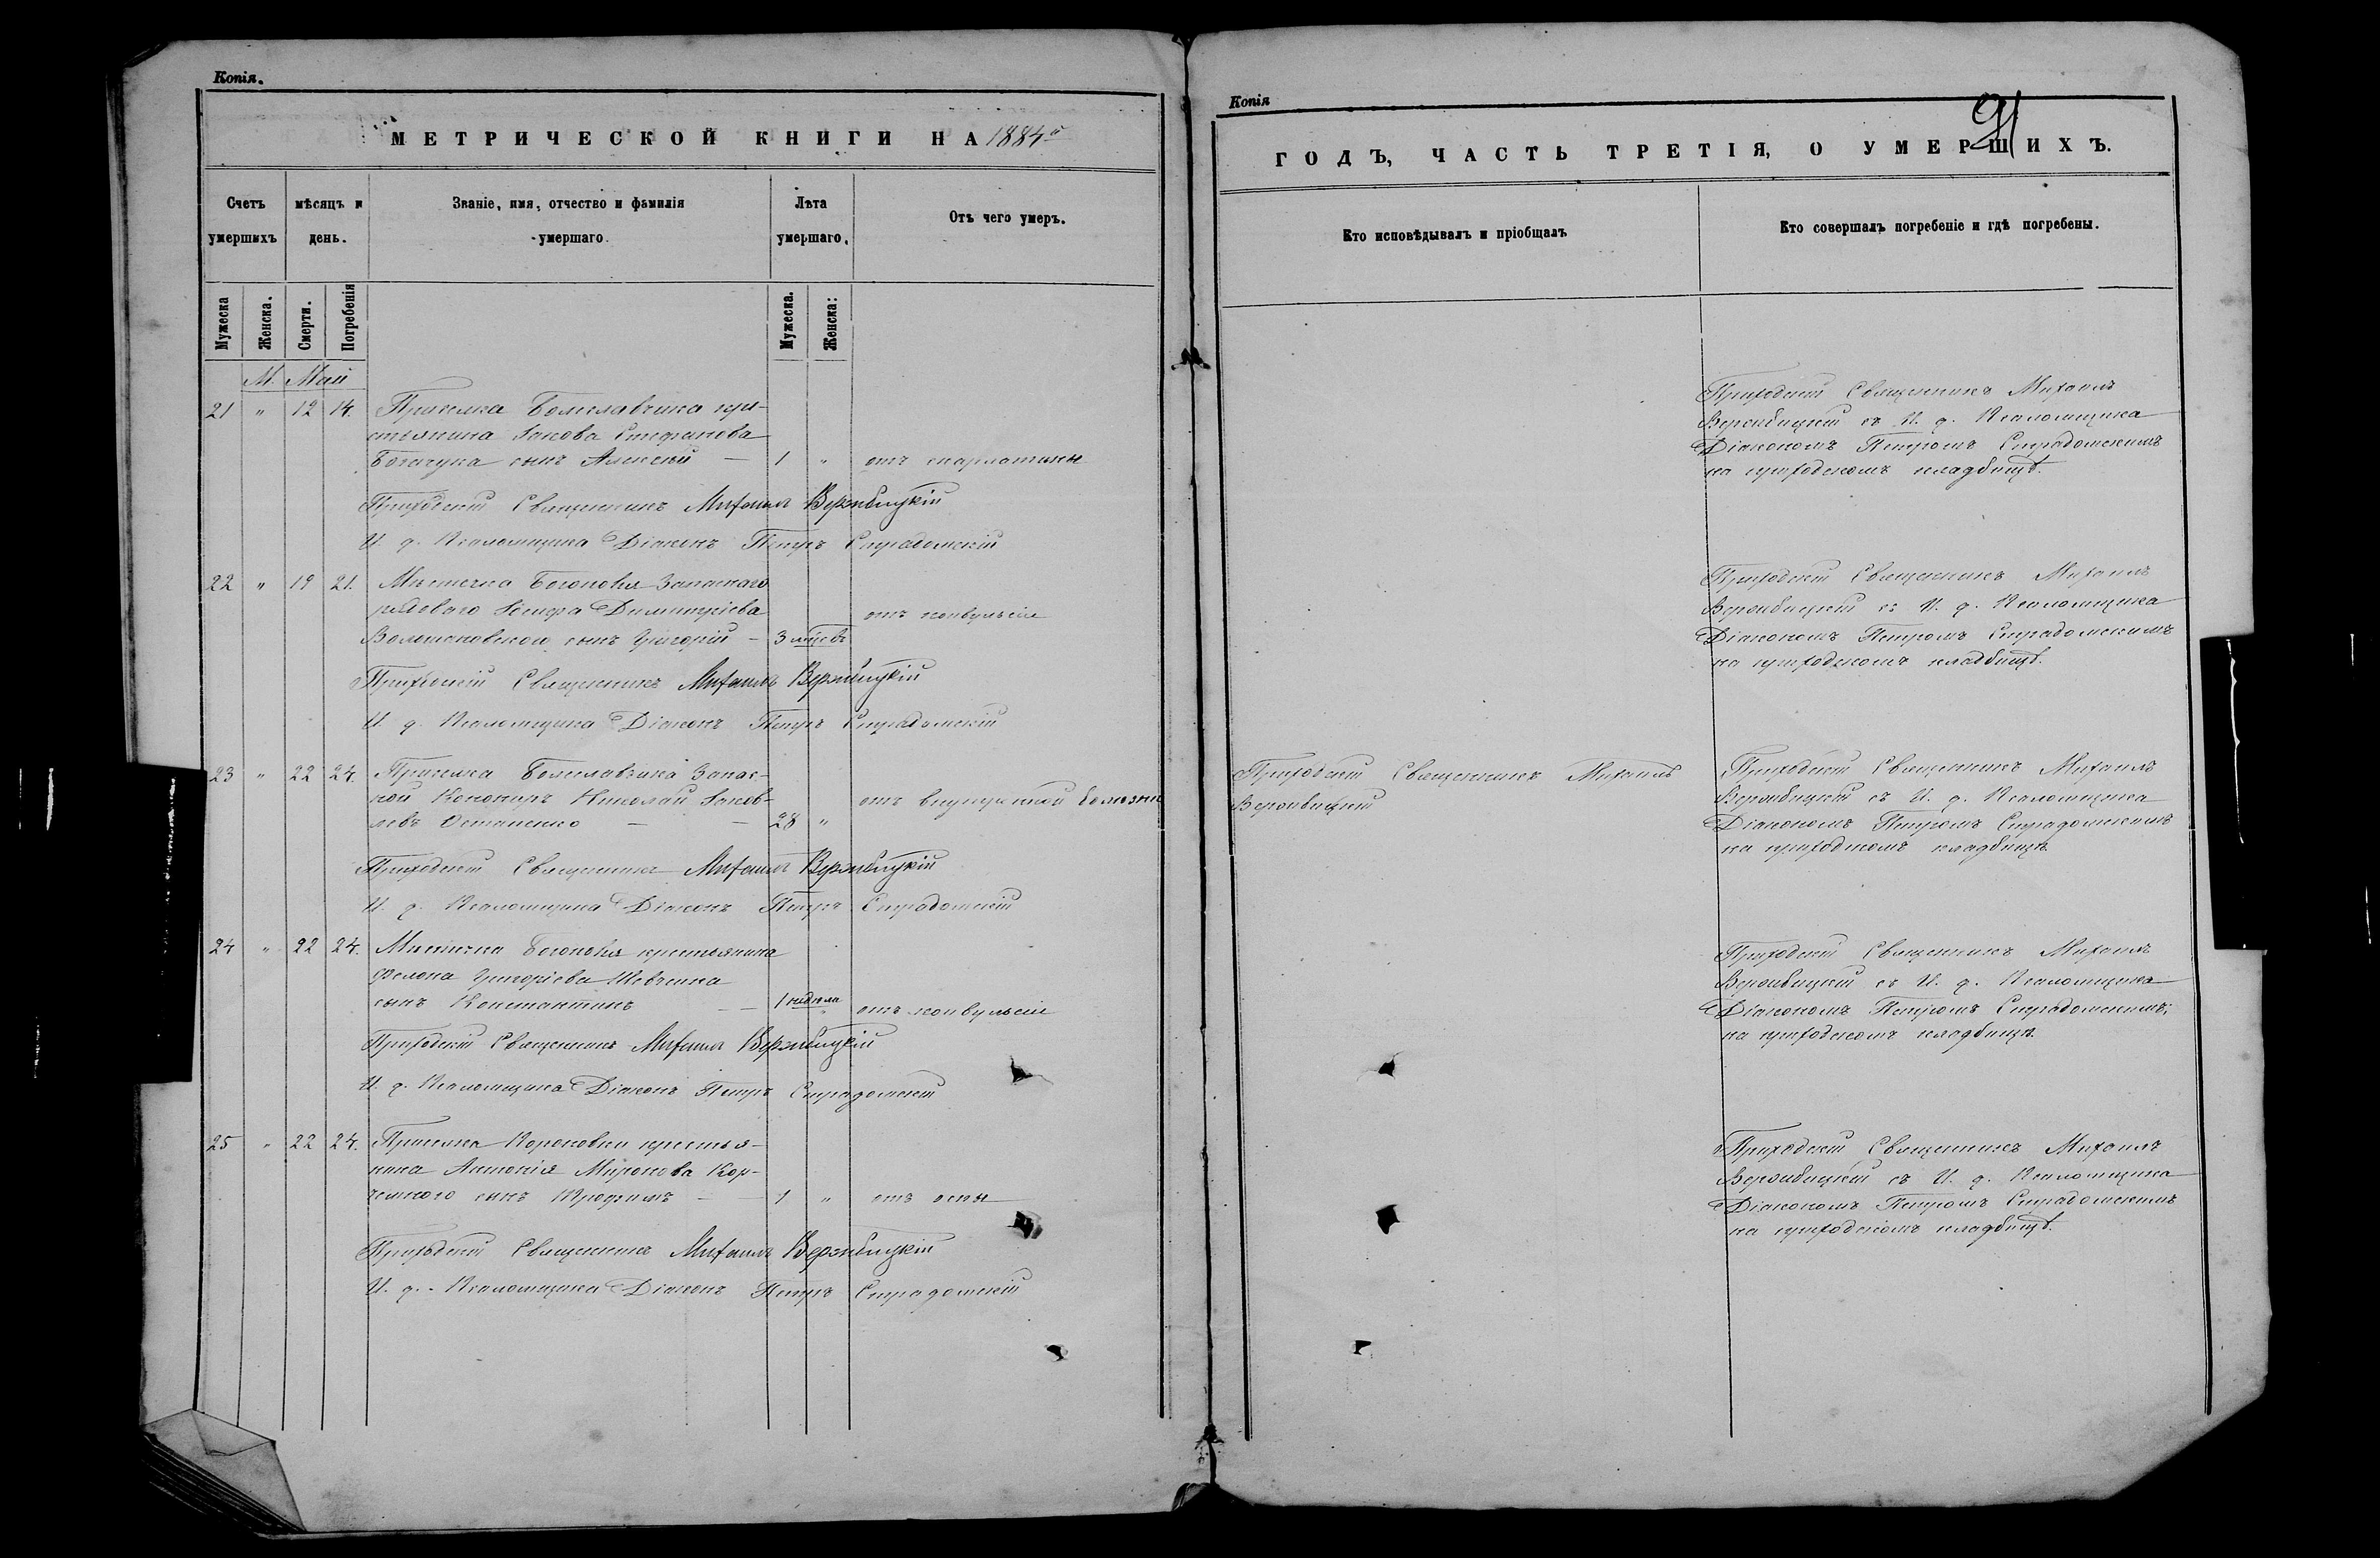 Копія.
МЕТРИЧЕСКОЙ КНИГИ НА 1884й
Счетъ умершихъ
мѣсяцъ и день.
Званіе, имя, отчество и фамилія умершаго.
Лѣта умершаго.
Отъ чего умеръ.
Мужеска
Женска.
Смерти.
Погребенія
Мужеска.
Женска:
М. Май
21 " 12 14. Приселка Болеславчика кре-
стьянина Іакова Стефанова
сынъ Алексій — 1 " отъ скарлатины
Приходскій Священникъ Михаилъ Вержбицкій
И. д. Псаломщика Діаконъ Петръ Страдомскій
22 " 19 21. Мѣстечка Богополя Запаснаго
рядоваго Іосифа Димитріева
сынъ Григорій — 3 мѣсяц. отъ конвульсіи
Приходскій Священникъ Михаилъ Вержбицкій
И. д. Псаломщика Діаконъ Петръ Страдомскій
23 " 22 24. Приселка Болеславчика Запас-
ной Николай Іаков-
левъ Остапенко — — 28 " отъ внутренней болезни
Приходскій Священникъ Михаилъ Вержбицкій
И. д. Псаломщика Діаконъ Петръ Страдомскій
24 " 22 24. Мѣстечка Богополя крестьянина
Григоріева Шевченка
сынъ Константинъ — 1 недѣля отъ конвульсіи
Приходскій Священникъ Михаилъ Вержбицкій
И. д. Псаломщика Діаконъ Петръ Страдомскій
25 " 22 24. Приселка крестья-
нина Антонія Миронова Кор-
чемнаго сынъ — — 1 " отъ оспы
Приходскій Священникъ Михаилъ Вержбицкій
И. д. Псаломщика Діаконъ Петръ Страдомскій
Копія
91
ГОДЪ, ЧАСТЬ ТРЕТІЯ, О УМЕРШИХЪ.
Кто исповѣдывалъ и пріобщалъ
Кто совершалъ погребеніе и гдѣ погребены.
Приходскій Священникъ Михаилъ
Вержбицкій съ И. д. Псаломщика
Діакономъ Петромъ Страдомскимъ
на приходскомъ кладбищѣ.
Приходскій Священникъ Михаилъ
Вержбицкій съ И. д. Псаломщика
Діакономъ Петромъ Страдомскимъ
на приходскомъ кладбищѣ.
Приходскій Священникъ Михаилъ
Вержбицкій
Приходскій Священникъ Михаилъ
Вержбицкій съ И. д. Псаломщика
Діакономъ Петромъ Страдомскимъ
на приходскомъ кладбищѣ
Приходскій Священникъ Михаилъ
Вержбицкій съ И. д. Псаломщика
Діакономъ Петромъ Страдомскимъ,
на приходскомъ кладбищѣ.
Приходскій Священникъ Михаилъ
Вержбицкій съ И. д. Псаломщика
Діакономъ Петромъ Страдомскимъ
на приходскомъ кладбищѣ.